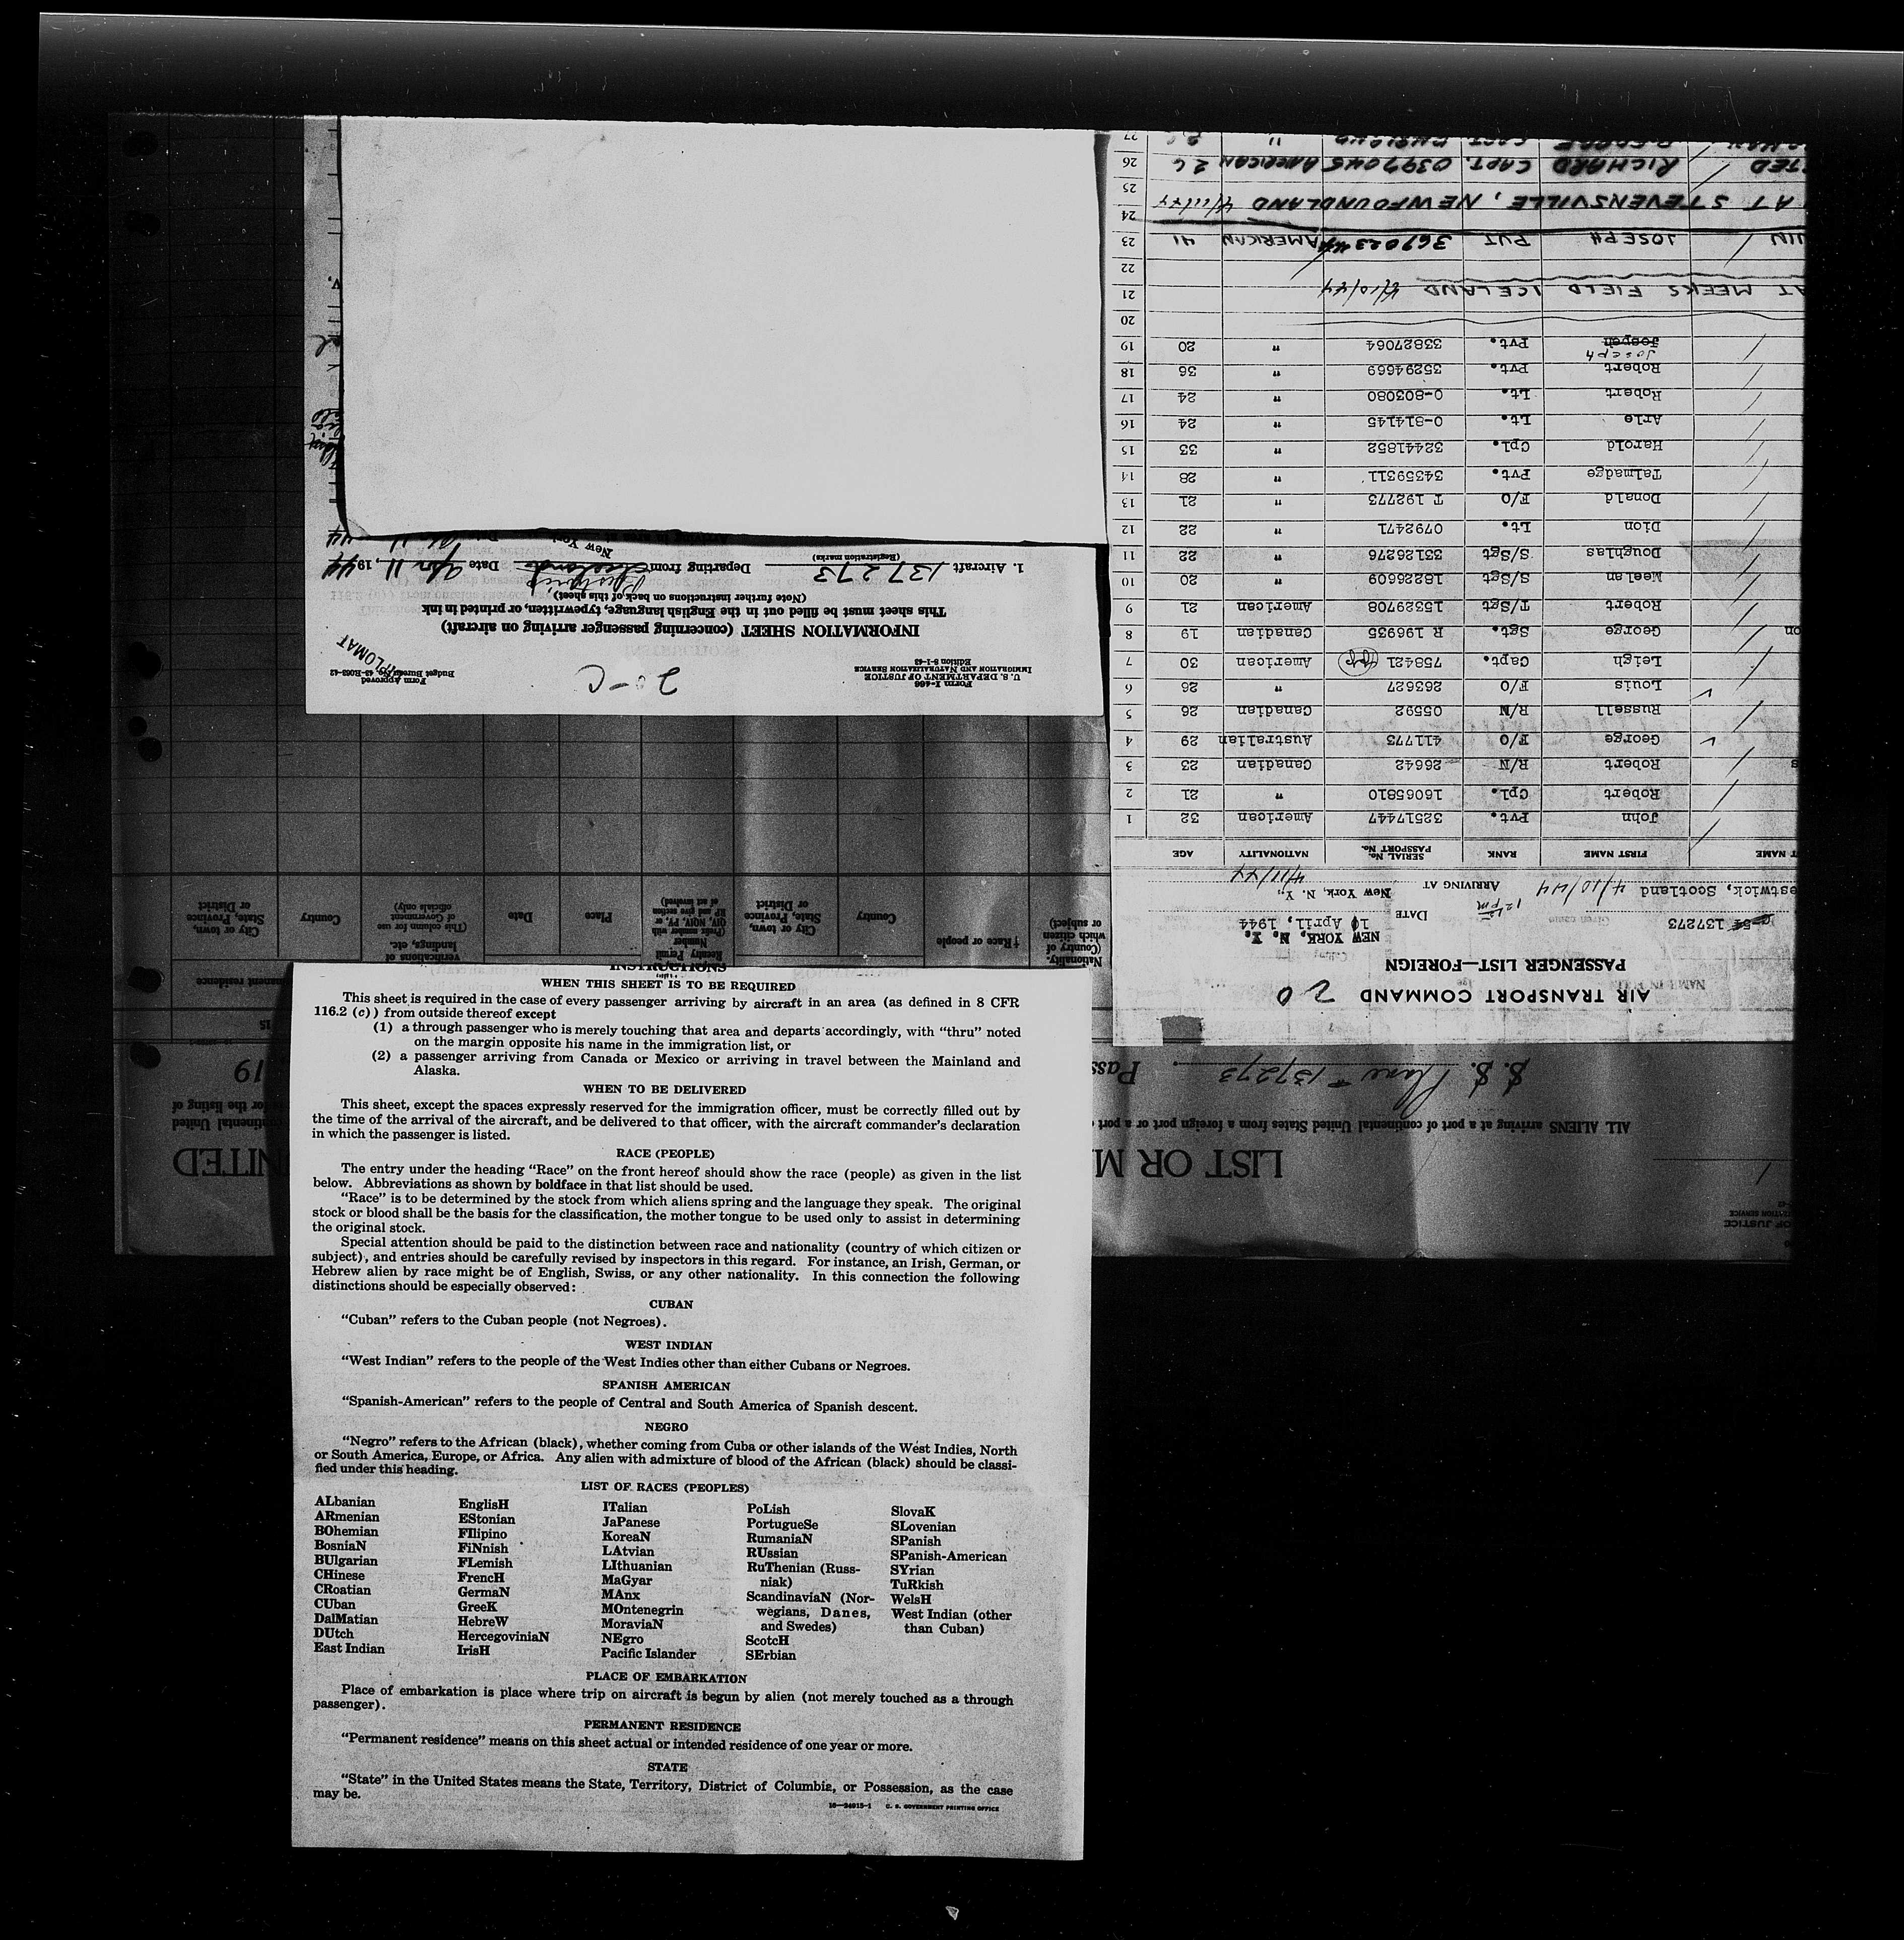 INSTRUCTIONS
WHEN THIS SHEET IS TO BE REQUIRED
This sheet is required in the case of every passenger arriving by aircraft in an area (as defined in 8 CFR
116.2 (c)) from outside thereof except
(1) a through passenger who is merely touching that area and departs accordingly, with “thru” noted
on the margin opposite his name in the immigration list, or
(2) a passenger arriving from Canada or Mexico or arriving in travel between the Mainland and
Alaska.
WHEN TO BE DELIVERED
This sheet, except the spaces expressly reserved for the immigration officer, must be correctly filled out by
the time of the arrival of the aircraft, and be delivered to that officer, with the aircraft commander's declaration
in which the passenger is listed.
RACE (PEOPLE)
The entry under the heading “Race” on the front hereof should show the race (people) as given in the list
below. Abbreviations as shown by boldface in that list should be used.
“Race” is to be determined by the stock from which aliens spring and the language they speak. The original
stock or blood shall be the basis for the classification, the mother tongue to be used only to assist in determining
the original stock.
Special attention should be paid to the distinction between race and nationality (country of which citizen or
subject), and entries should be carefully revised by inspectors in this regard. For instance, an Irish, German, or
Hebrew alien by race might be of English, Swiss, or any other nationality. In this connection the following
distinctions should be especially observed:
CUBAN
“Cuban” refers to the Cuban people (not Negroes).
WEST INDIAN
“West Indian” refers to the people of the West Indies other than either Cubans or Negroes.
SPANISH AMERICAN
“Spanish-American” refers to the people of Central and South America of Spanish descent.
NEGRO
“Negro” refers to the African (black), whether coming from Cuba or other islands of the West Indies, North
or South America, Europe, or Africa. Any alien with admixture of blood of the African (black) should be classi-
fied under this heading.
LIST OF RACES (PEOPLES)
ALbanian
ARmenian
BOhemian
BosniaN
BUlgarian
CHinese
CRoatian
CUban
DalMatian
DUtch
East Indian
EnglisH
EStonian
FIlipino
FiNnish
FLemish
FrencH
GermaN
GreeK
HebreW
HercegoviniaN
IrisH
ITalian
JaPanese
KoreaN
LAtvian
LIthuanian
MaGyar
MAnx
MOntenegrin
MoraviaN
NEgro
Pacific Islander
PoLish
PortugueSe
RumaniaN
RUssian
RuThenian (Russ-
niak)
ScandinaviaN (Nor-
wegians, Danes,
and Swedes)
ScotcH
SErbian
SlovaK
SLovenian
SPanish
SPanish-American
SYrian
TuRkish
WelsH
West Indian (other
than Cuban)
PLACE OF EMBARKATION
Place of embarkation is place where trip on aircraft is begun by alien (not merely touched as a through
passenger).
PERMANENT RESIDENCE
“Permanent residence” means on this sheet actual or intended residence of one year or more.
STATE
“State” in the United States means the State, Territory, District of Columbia, or Possession, as the case
may be.
16—34915-1 U. S. GOVERNMENT PRINTING OFFICE
Form I-466
U. S. DEPARTMENT OF JUSTICE
IMMIGRATION AND NATURALIZATION SERVICE
Edition 8-1-43
20-C
Form Approved
Budget Bureau No. 43-R083-42
DIPLOMAT
INFORMATION SHEET (concerning passenger arriving on aircraft)
This sheet must be filled out in the English language, typewritten, or printed in ink
(Note further instructions on back of this sheet)
1. Aircraft 137273 Departing from Prestwick Date Apr 11, 1944
(Registration marks)
New York
AIR TRANSPORT COMMAND 20
PASSENGER LIST—FOREIGN
NEW YORK, N. Y.
137273 DATE 10 April, 1944
estwick, Scotland 4/10/44 ARRIVING AT New York, N. Y. 4/11/44
12 pm
T NAME FIRST NAME RANK SERIAL No. PASSPORT No. NATIONALITY AGE
John Pvt. 32517447 American 32 1
Robert Cpl. 16065810 " 21 2
s Robert R/N 26642 Canadian 23 3
George F/O 411773 Australian 29 4
Russell R/N 05592 Canadian 26 5
Louis F/O 263627 " 26 6
Leigh Capt. 758421 American 30 7
on George Sgt. R 196935 Canadian 19 8
Robert T/Sgt 15329708 American 21 9
Meelan S/Sgt 18226609 " 20 10
Doughlas S/Sgt 33126276 " 22 11
Dion Lt. 0792471 " 22 12
Donald F/O T 192773 " 21 13
Talmadge Pvt. 34359311 " 28 14
Harold Cpl. 32441852 " 33 15
Arle Lt. 0-814145 " 24 16
Robert Lt. 0-803080 " 24 17
Robert Pvt. 35294669 " 36 18
Joseph Pvt. 33827064 " 20 19
20
AT MEEKS FIELD ICELAND 4/10/44 21
22
JOSEPH PVT AMERICAN 41 23
24
AT STEVENSVILLE, NEWFOUNDLAND 4/11/44 25
TED RICHARD CAPT. 0397045 AMERICAN 26 26
GEORGE CAPT. " 27
LIST OR M
NITED
ALL ALIENS arriving at a port of continental United States from a foreign port or a port
S. S. Plane # 137273 Pass
19
for the listing of
Nationality. (Country of which citizen or subject)
†Race or people
Country
City or town, State, Province or District
Number
Place
Date
verifications of landings, etc. (This column for use of Government officials only)
Country
City or town, State, Province or District
manent residence
15